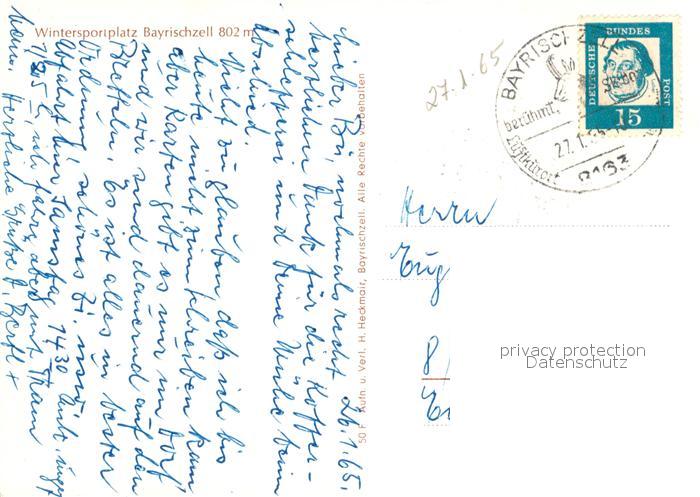 Wintersportplatz Bayrischzell 802 m
26.1.65.
Lieber Bú, nochmals recht
herzlichen Dank für die Koffer-
schlepperei und Deine Mühe beim
Abschied.
Nicht zu glauben, daß ich bis
heute nicht zum schreiben kam
aber Karten gibt es nur im Dorf
und wir sind dauernd auf den
Bretteln. Es ist alles in bester
Ordnung, schönes Zi. usw.
Abfahrt hier Samstag 1430 Uhr,
ich fahre aber mit
heim. Herzliche Grüße
50 F Aufn. u. Verl. H. Heckmair, Bayrischzell. Alle Rechte vorbehalten
27.1.65
BAYRISCHZELL
berühmt.
Luftkurort
27.1.65
8163
DEUTSCHE
BUNDES
POST
15
Herrn
Eug
8
privacy protection
Datenschutz